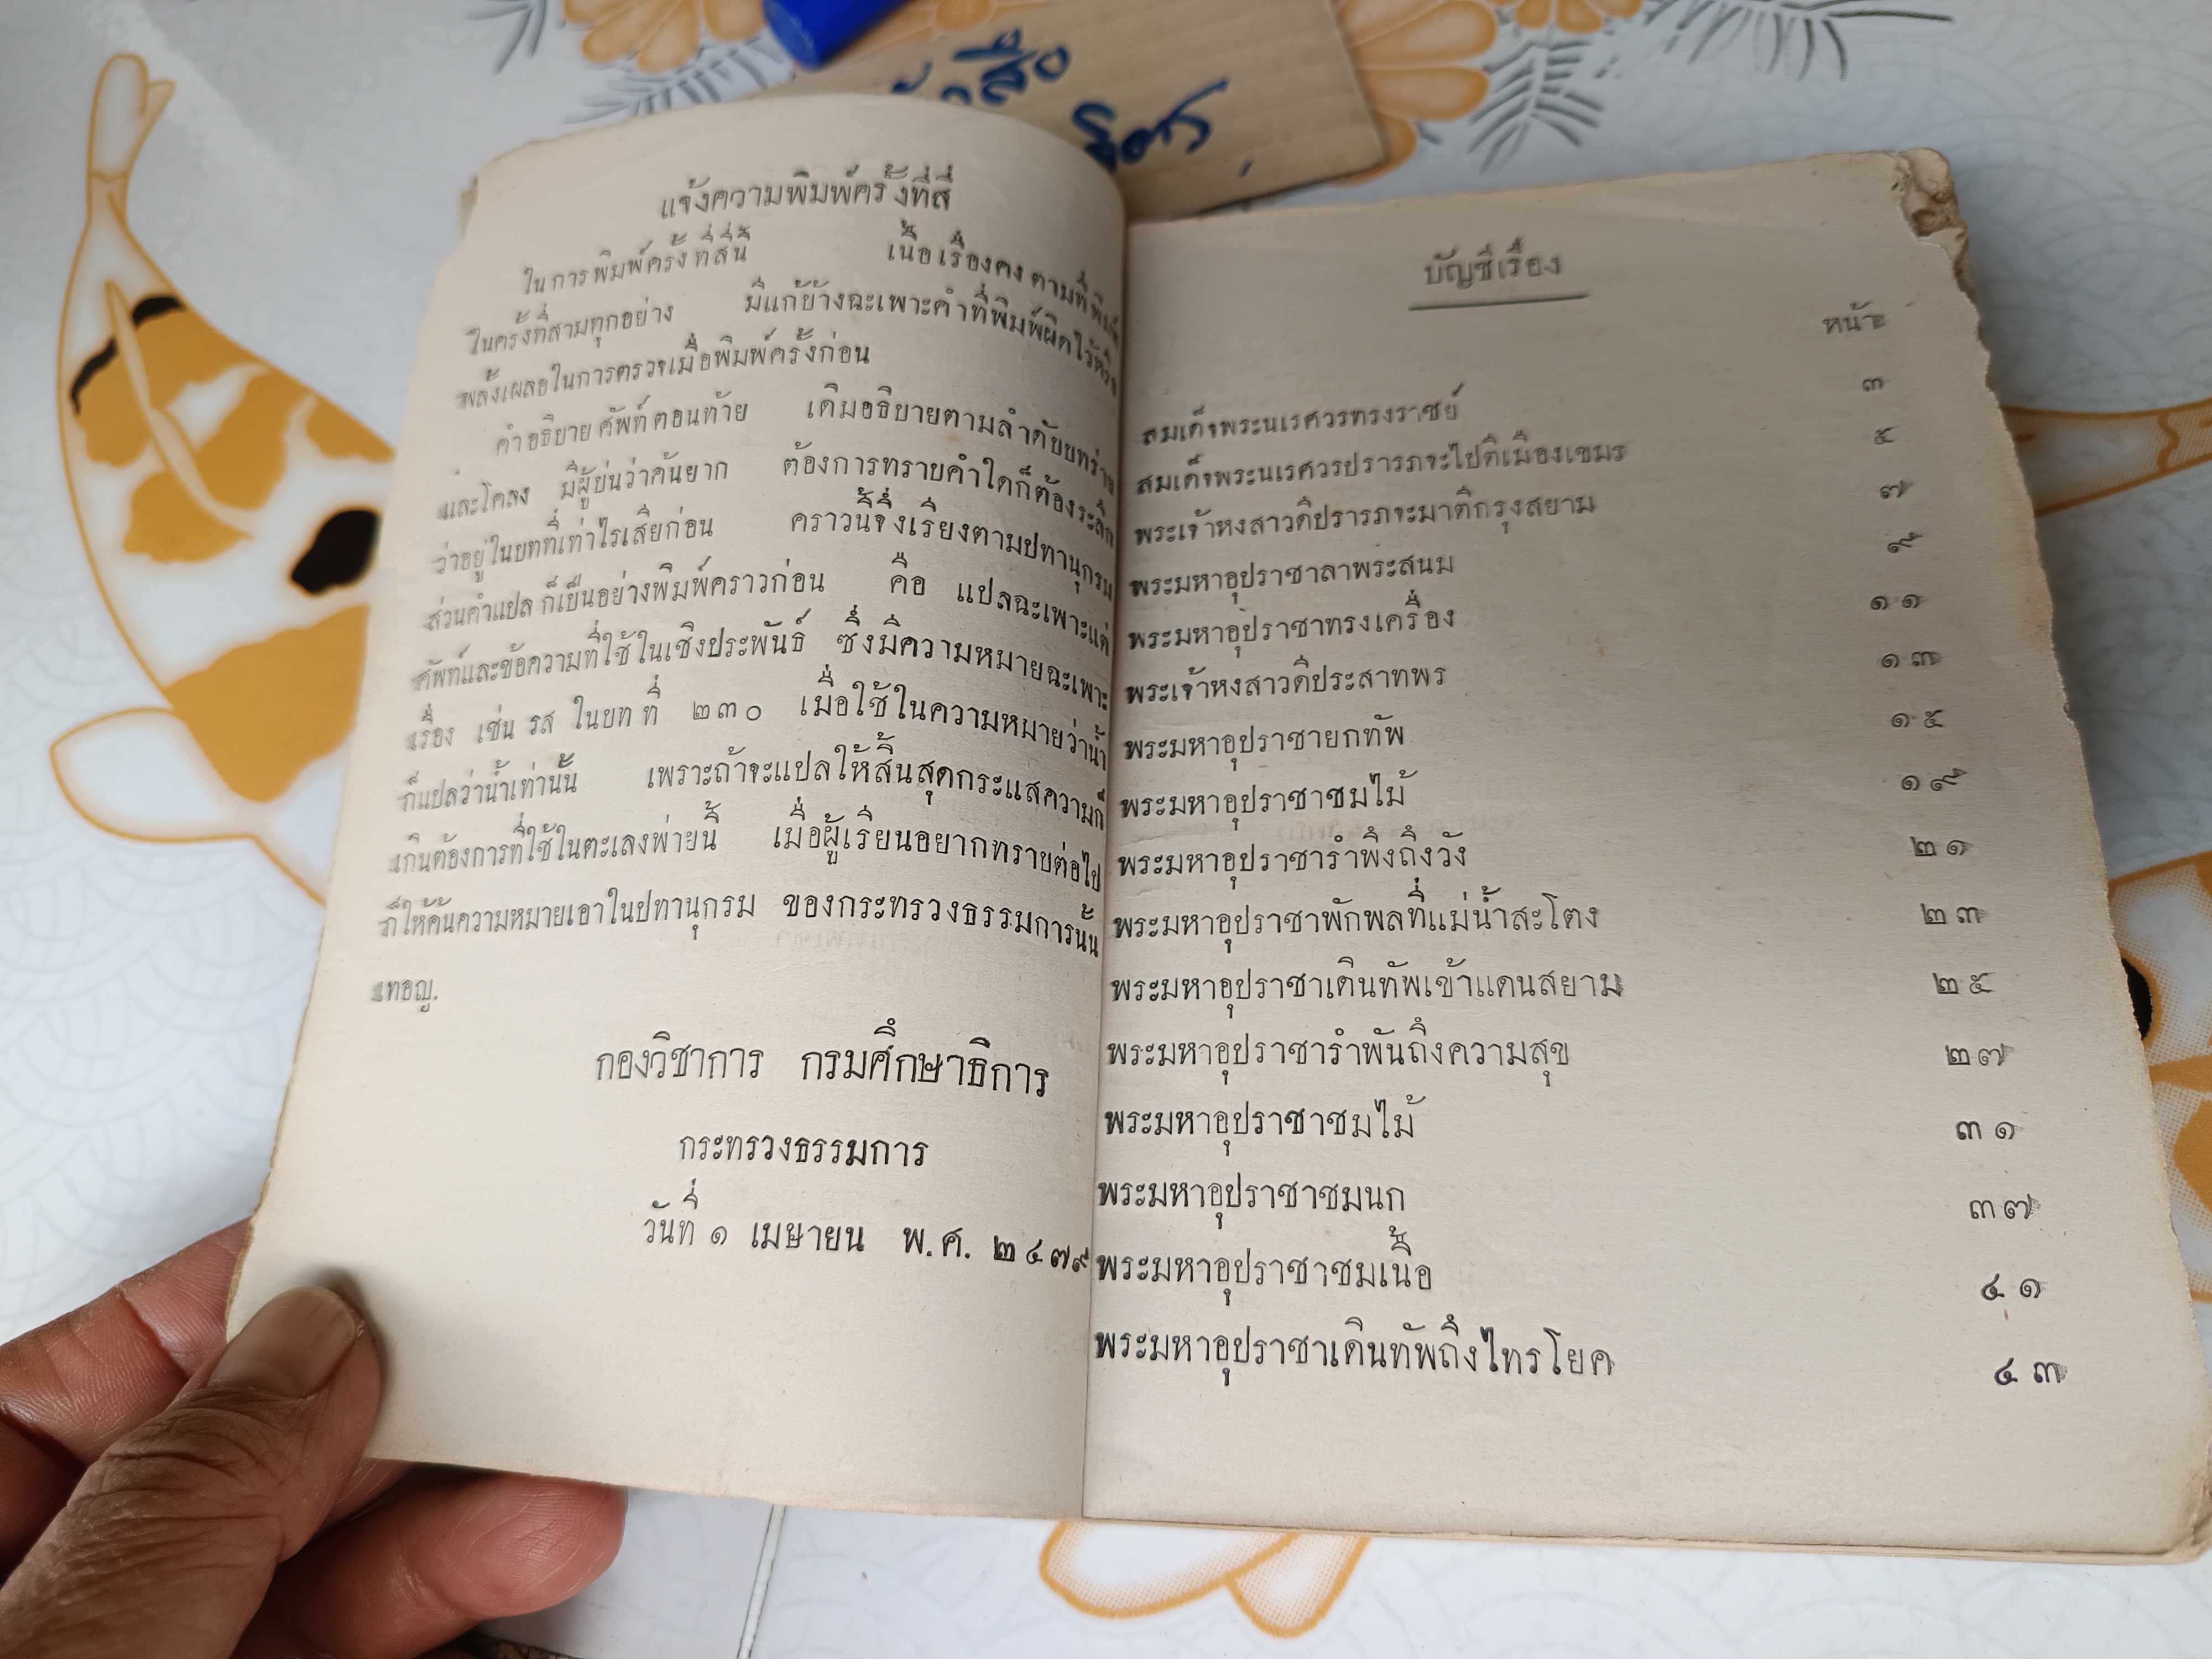 แจ้งความพิมพ์ครั้งที่สี่
ในการพิมพ์ครั้งที่สี่นี้ เนื้อเรื่องคงตามที่พิมพ์
ในครั้งที่สามทุกอย่าง มีแก้บ้างฉะเพาะคำที่พิมพ์ผิดไว้หรือ
พลั้งเผลอในการตรวจเมื่อพิมพ์ครั้งก่อน
คำอธิบายศัพท์ตอนท้าย เดิมอธิบายตามลำดับบทร่าย
และโคลง มีผู้บ่นว่าค้นยาก ต้องการทราบคำใดก็ต้องระลึก
ว่าอยู่ในบทที่เท่าไรเสียก่อน คราวนี้จึ่งเรียงตามปทานุกรม
ส่วนคำแปลก็เป็นอย่างพิมพ์คราวก่อน คือ แปลฉะเพาะแต่
ศัพท์และข้อความที่ใช้ในเชิงประพันธ์ ซึ่งมีความหมายฉะเพาะ
เรื่อง เช่น รส ในบทที่ ๒๓๐ เมื่อใช้ในความหมายว่าน้ำ
ก็แปลว่าน้ำเท่านั้น เพราะถ้าจะแปลให้สิ้นสุดกระแสความก็
เกินต้องการที่ใช้ในตะเลงพ่ายนี้ เมื่อผู้เรียนอยากทราบต่อไป
ก็ให้ค้นความหมายเอาในปทานุกรม ของกระทรวงธรรมการนั้น
เทอญ.
กองวิชาการ กรมศึกษาธิการ
กระทรวงธรรมการ
วันที่ ๑ เมษายน พ.ศ. ๒๔๗๙
บัญชีเรื่อง
หน้า
สมเด็จพระนเรศวรทรงราชย์ ๓
สมเด็จพระนเรศวรปรารภจะไปตีเมืองเขมร ๕
พระเจ้าหงสาวดีปรารภจะมาตีกรุงสยาม ๗
พระมหาอุปราชาลาพระสนม ๙
พระมหาอุปราชาทรงเครื่อง ๑๑
พระเจ้าหงสาวดีประสาทพร ๑๓
พระมหาอุปราชายกทัพ ๑๕
พระมหาอุปราชาชมไม้ ๑๙
พระมหาอุปราชารำพึงถึงวัง ๒๑
พระมหาอุปราชาพักพลที่แม่น้ำสะโตง ๒๓
พระมหาอุปราชาเดินทัพเข้าแดนสยาม ๒๕
พระมหาอุปราชารำพันถึงความสุข ๒๗
พระมหาอุปราชาชมไม้ ๓๑
พระมหาอุปราชาชมนก ๓๗
พระมหาอุปราชาชมเนื้อ ๔๑
พระมหาอุปราชาเดินทัพถึงไทรโยค ๔๓